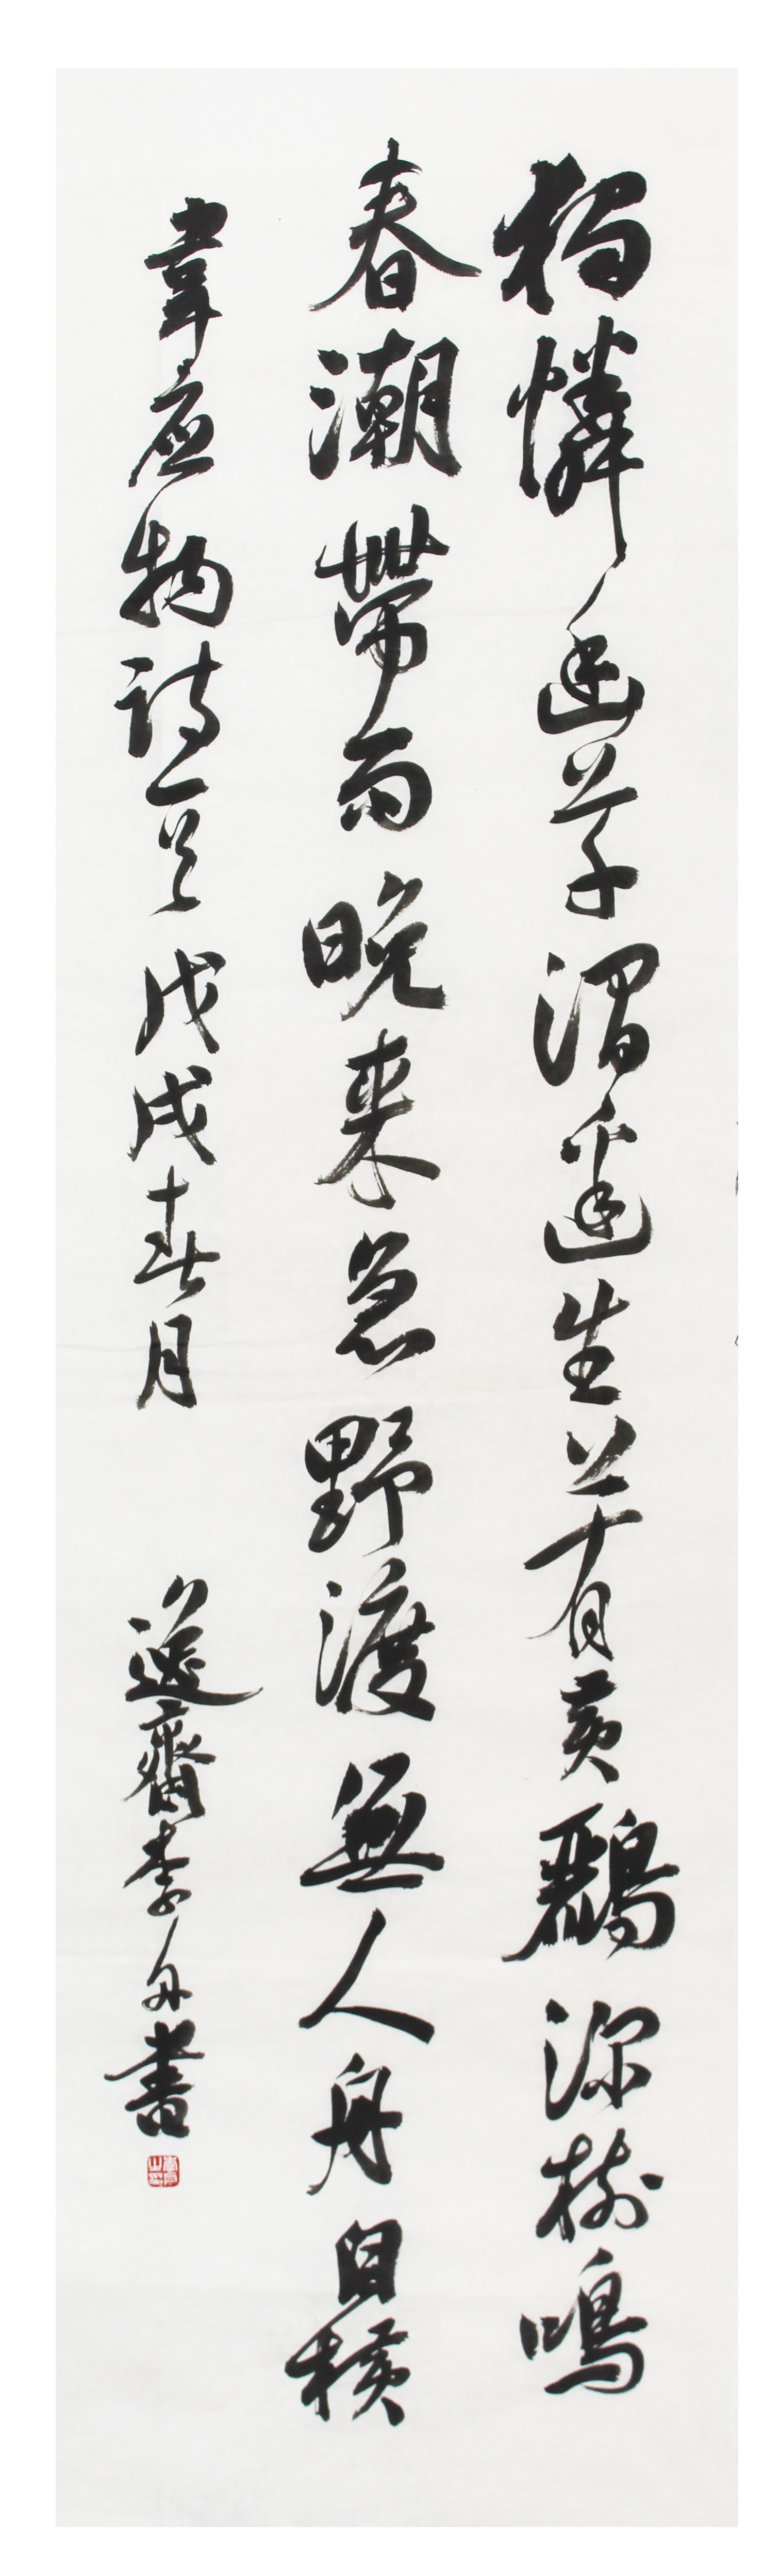 獨憐幽草澗邊生上有黃鸝深樹鳴
春潮帶雨晚來急野渡無人舟自橫
韋應物詩一首戊戌春月
逸齋李書